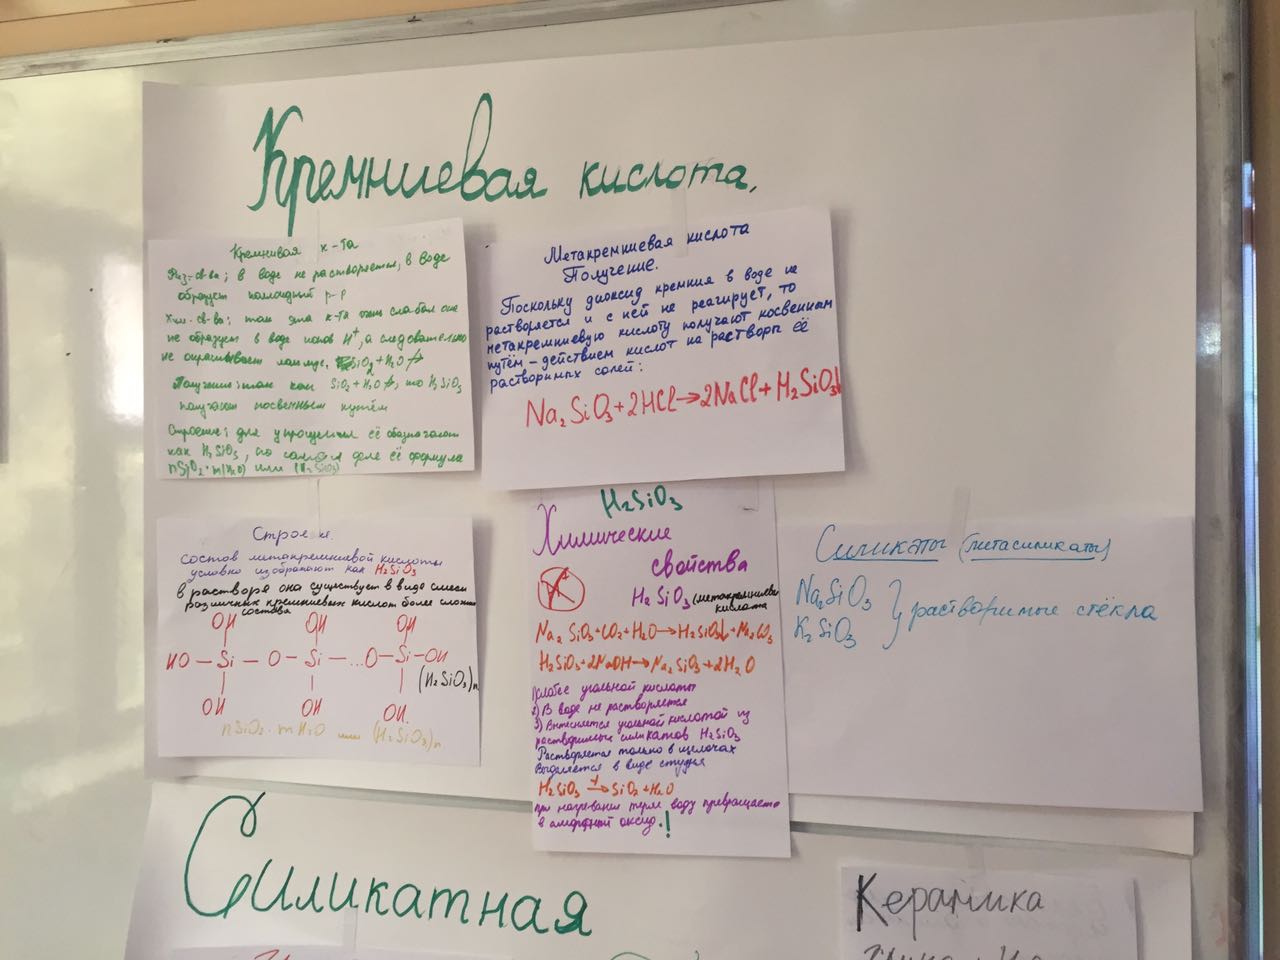 Кремниевая кислота.
Кремнивая к-та
Физ-св-ва; в воде не растворяется, в воде
образует коллоидный р-р
Хим. св-ва; так как к-та очень слабая она
не образует в воде ионов H⁺, а следовательно
не окрашивает лакмус. SiO₂ + H₂O ↛
Получение: так как SiO₂ + H₂O ↛, то H₂SiO₃
получают косвенным путём
Строение; для упрощения её обозначают
как H₂SiO₃, но самом деле её формула
nSiO₂·m(H₂O) или (H₂SiO₃)
Метакремниевая кислота
Получение.
Поскольку диоксид кремния в воде не
растворяется и с ней не реагирует, то
метакремниевую кислоту получают косвенным
путём - действием кислот на растворы её
растворимых солей:
Na₂SiO₃ + 2HCl → 2NaCl + H₂SiO₃↓
Строе
состав метакремниевой кислоты
условно изображают как H₂SiO₃
в растворе она существует в виде смеси
различных кремниевых кислот более сложн
состава
OH OH OH
HO — Si — O — Si — ... O — Si — OH
(H₂SiO₃)n
OH OH OH.
nSiO₂·mH₂O или (H₂SiO₃)n
H₂SiO₃
Химические
свойства
H₂SiO₃ (метакремниевая
кислота
Na₂SiO₃ + CO₂ + H₂O → H₂SiO₃↓ + Na₂CO₃
H₂SiO₃ + 2NaOH → Na₂SiO₃ + 2H₂O
1) слабее угольной кислоты
2) В воде не растворяется
3) Вытесняется угольной кислотой из
растворимых силикатов H₂SiO₃
Растворяется только в щелочах
Выделяется в виде студня
H₂SiO₃ → SiO₂ + H₂O
при нагревании теряя воду превращается
в аморфный оксид.!
Силикаты (метасиликаты)
Na₂SiO₃
K₂SiO₃ } растворимые стёкла
Силикатная
Керамика